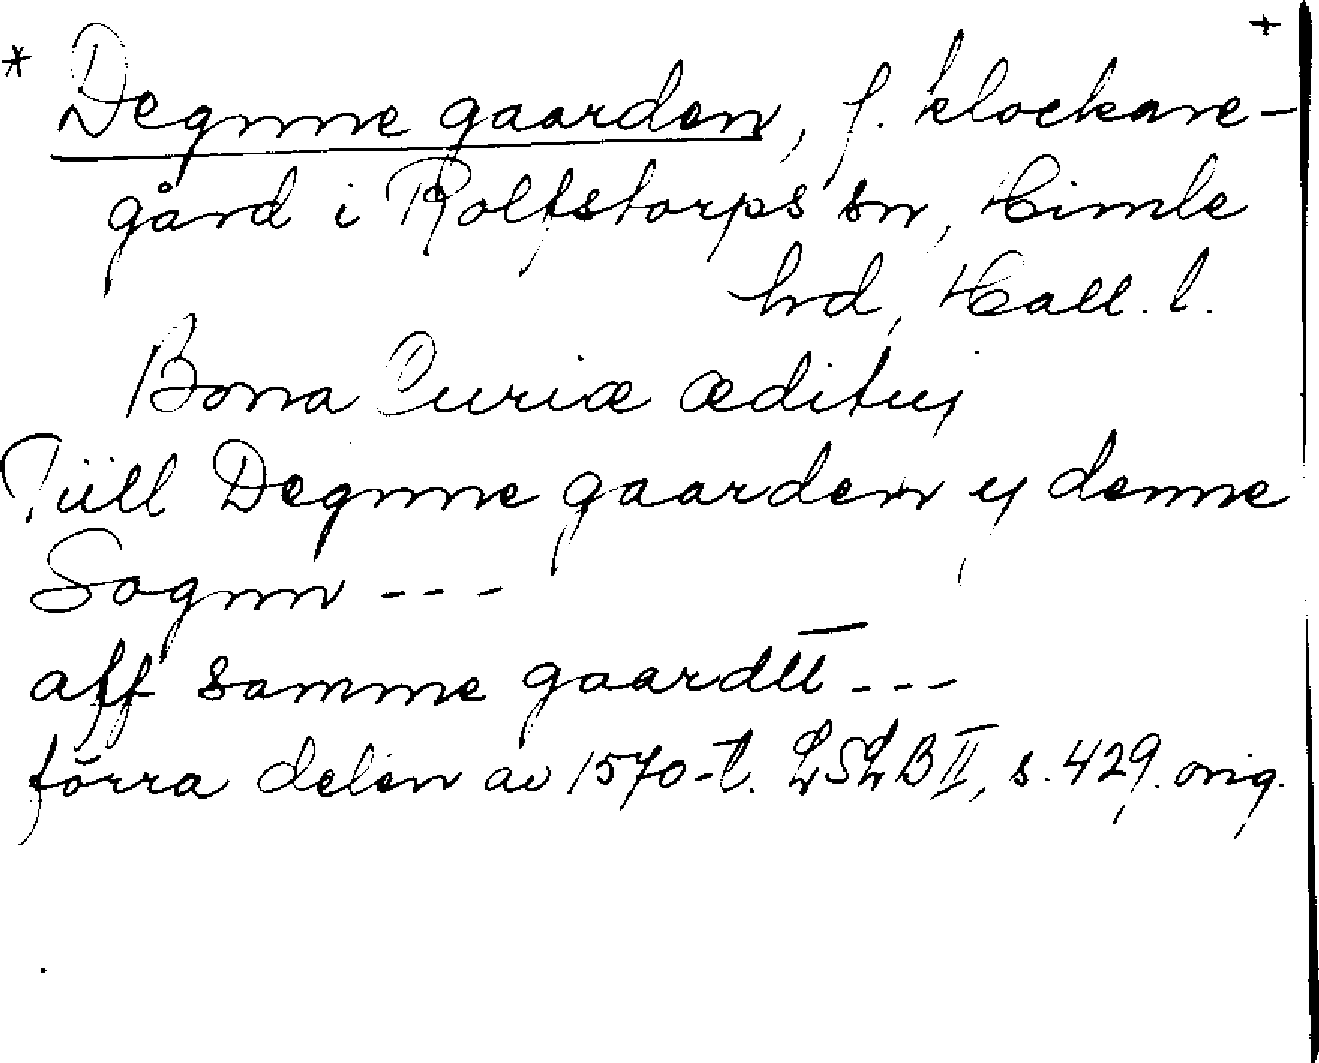 * Degnne gaarden, f. klockare- +
gård i Rolfstorps sn, Himle
hrd, Hall. l.
Bona Curiæ ædituj
Tüll Degnne gaarden ij denne
Sognn ---
aff samme gaardtt ---
förra delen av 1570-t. LSLB II, s. 429. orig.